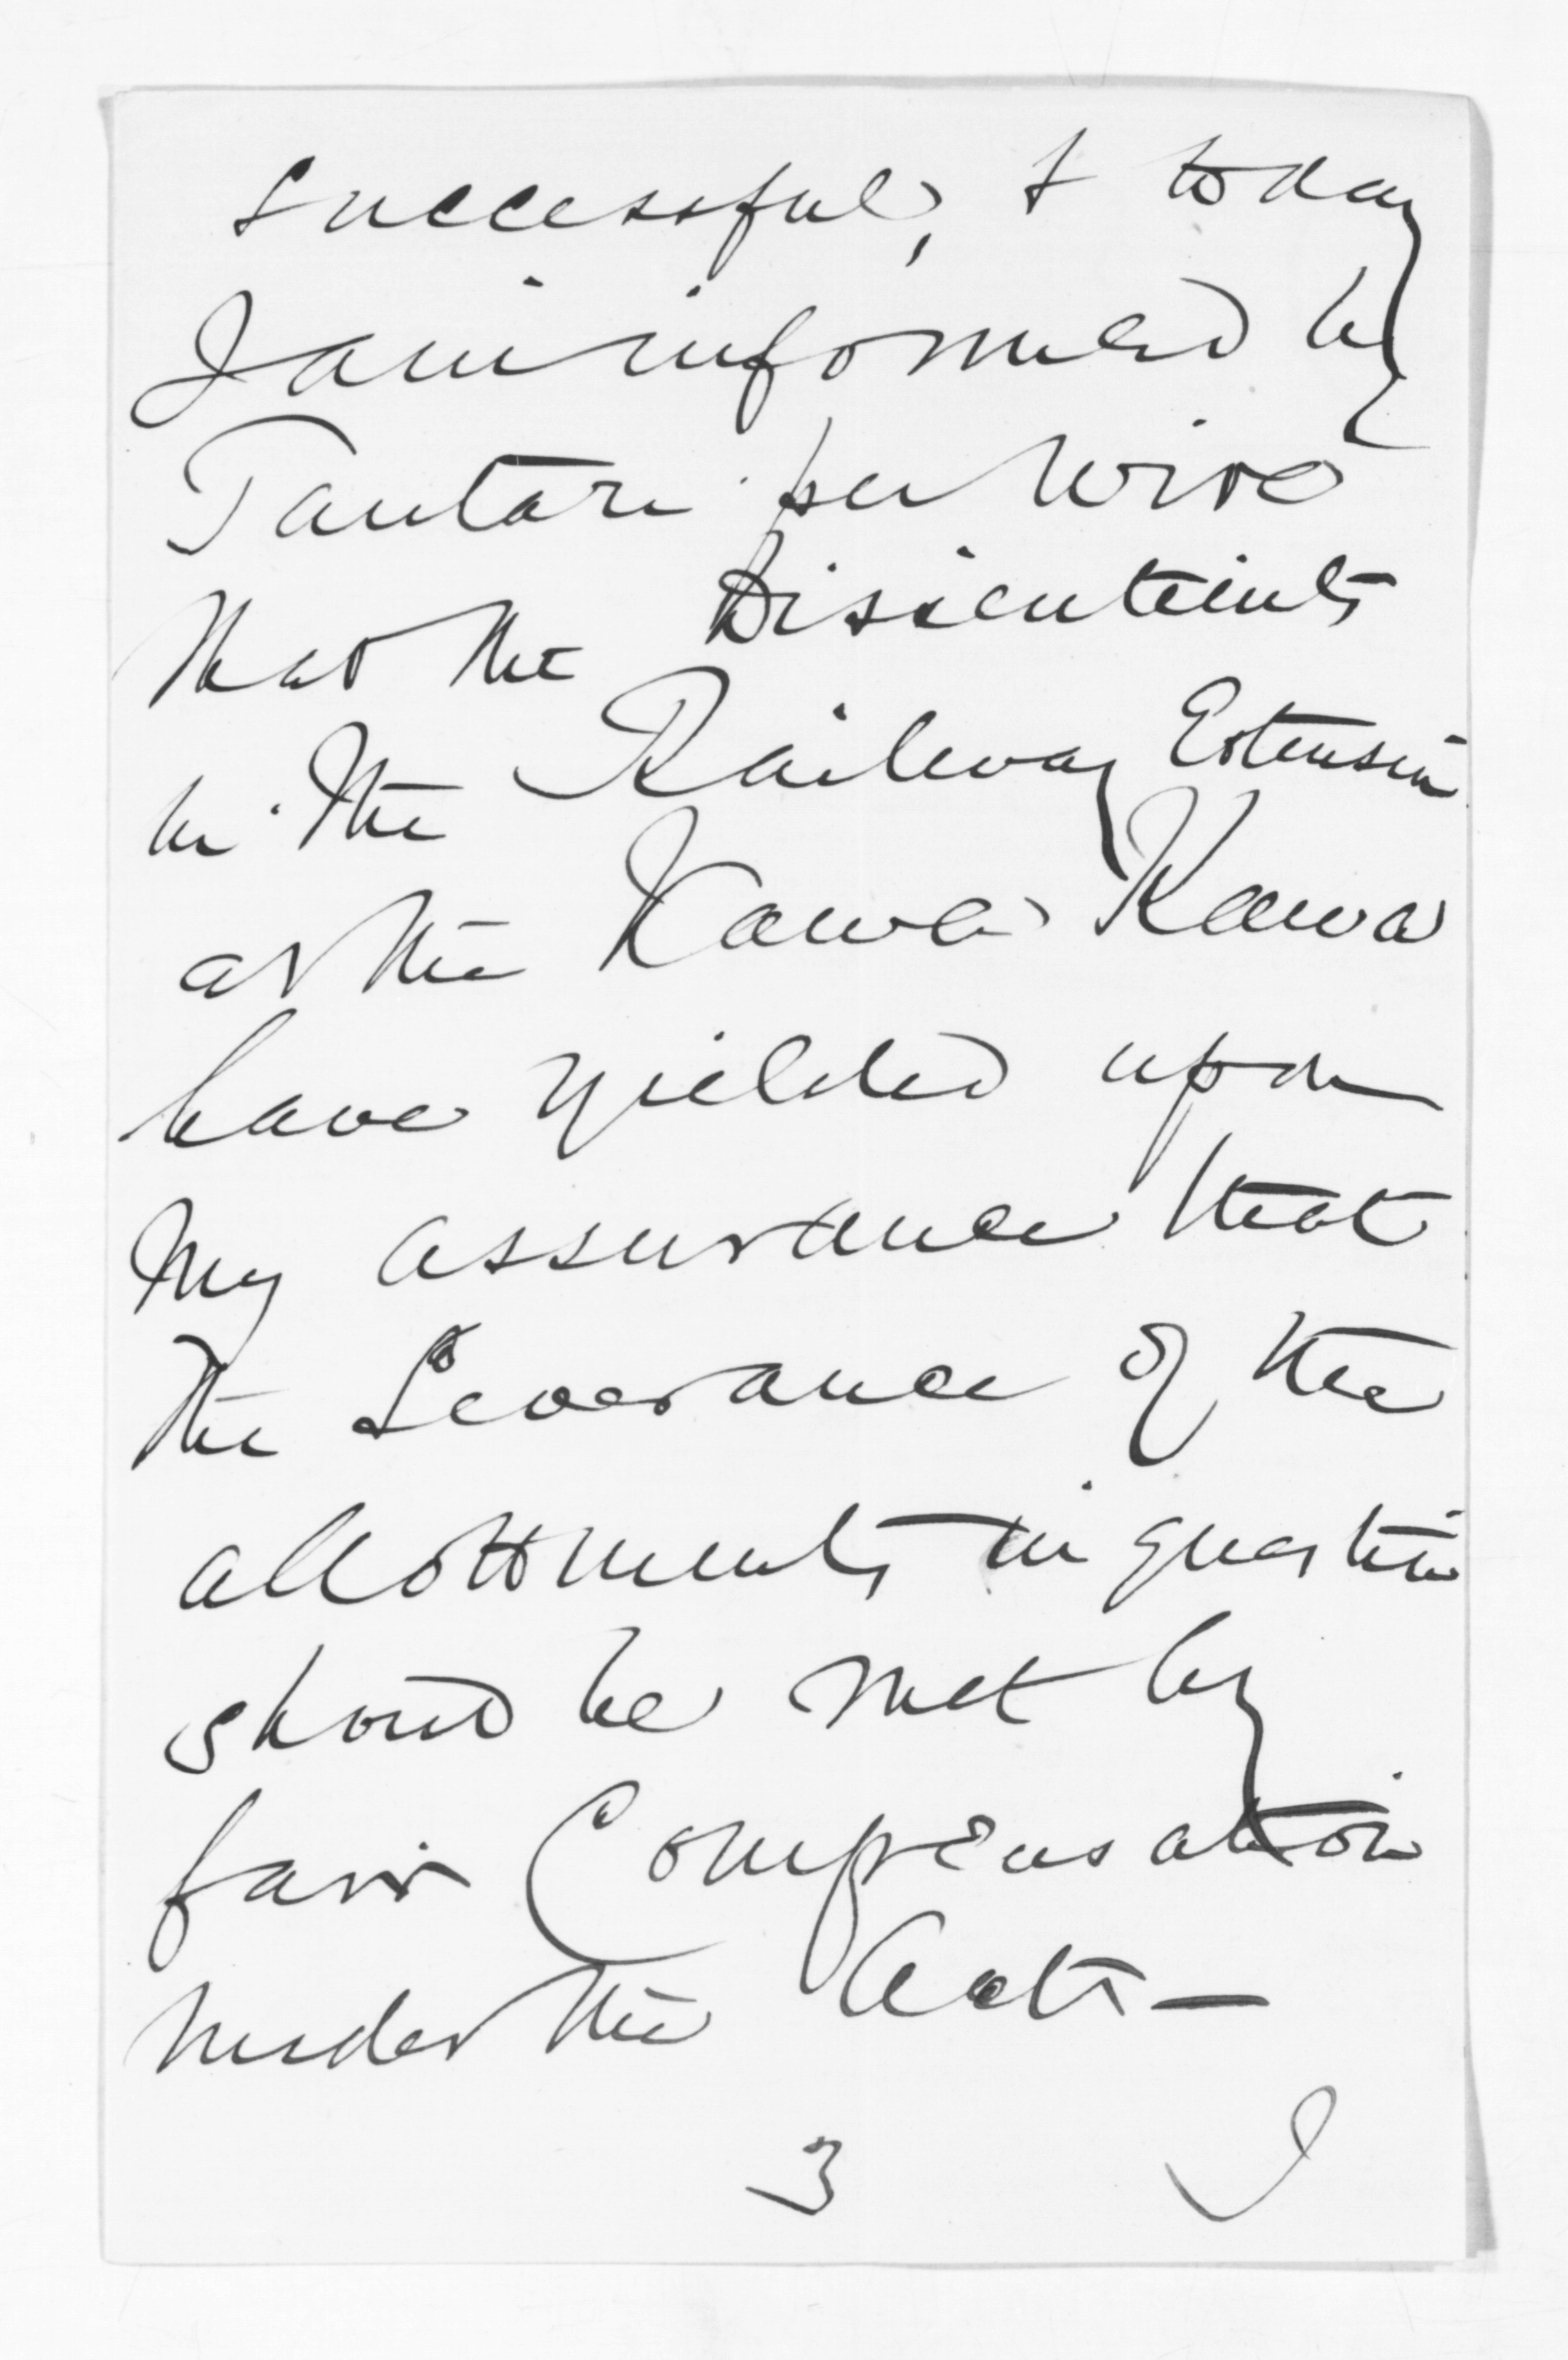 successful, & today
I am informed by
Tautari per wire
that the Discontents
in the Railway Extension
at the Kawa Kawa
have yielded upon
my assurance that
the Severance of the
allottments in question
should be met by
fair Compensation
under the Acts —
3 I